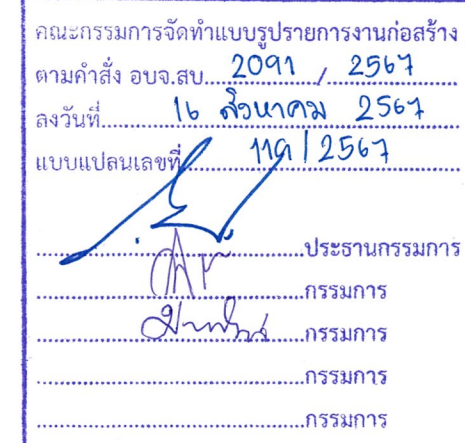 คณะกรรมการจัดทำแบบรูปรายการงานก่อสร้าง
ตามคำสั่ง อบจ.สบ. 2091 / 2567
ลงวันที่ 16 สิงหาคม 2567
แบบแปลนเลขที่ 119 / 2567
ประธานกรรมการ
กรรมการ
กรรมการ
กรรมการ
กรรมการ